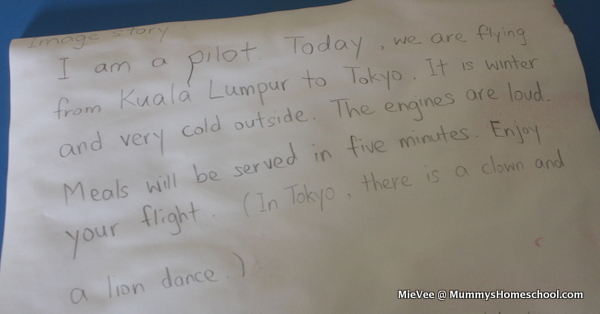 Image story:
I am a pilot. Today, we are flying
from Kuala Lumpur to Tokyo. It is winter
and very cold outside. The engines are loud.
Meals will be served in five minutes. Enjoy
your flight. (In Tokyo, there is a clown and
a lion dance.)
MieVee @ MummysHomeschool.com